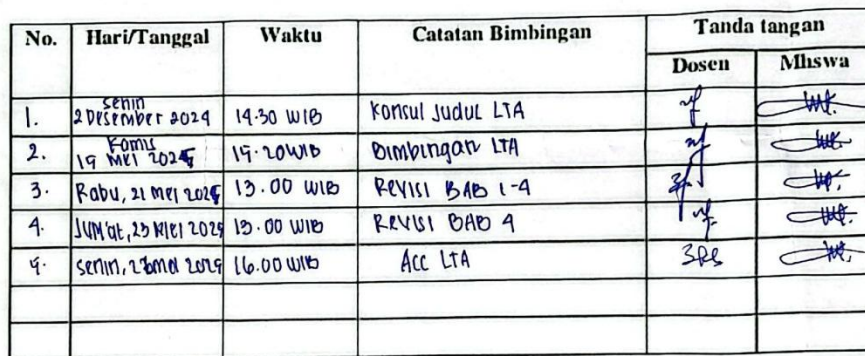 No. Hari/Tanggal Waktu Catatan Bimbingan Tanda tangan
Dosen Mhswa
1. Senin 2 Desember 2024 14.30 WIB Konsul Judul LTA
2. Kamis 19 Mei 2025 19.20 WIB Bimbingan LTA
3. Rabu, 21 Mei 2025 13.00 WIB Revisi BAB 1-4
4. Jum'at, 23 Mei 2025 13.00 WIB Revisi BAB 4
5. Senin, Mei 2025 16.00 WIB Acc LTA